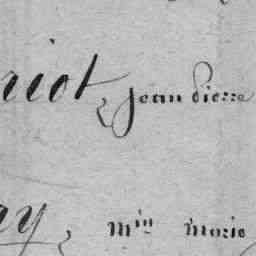 riot, jean pierre
ay, min marie